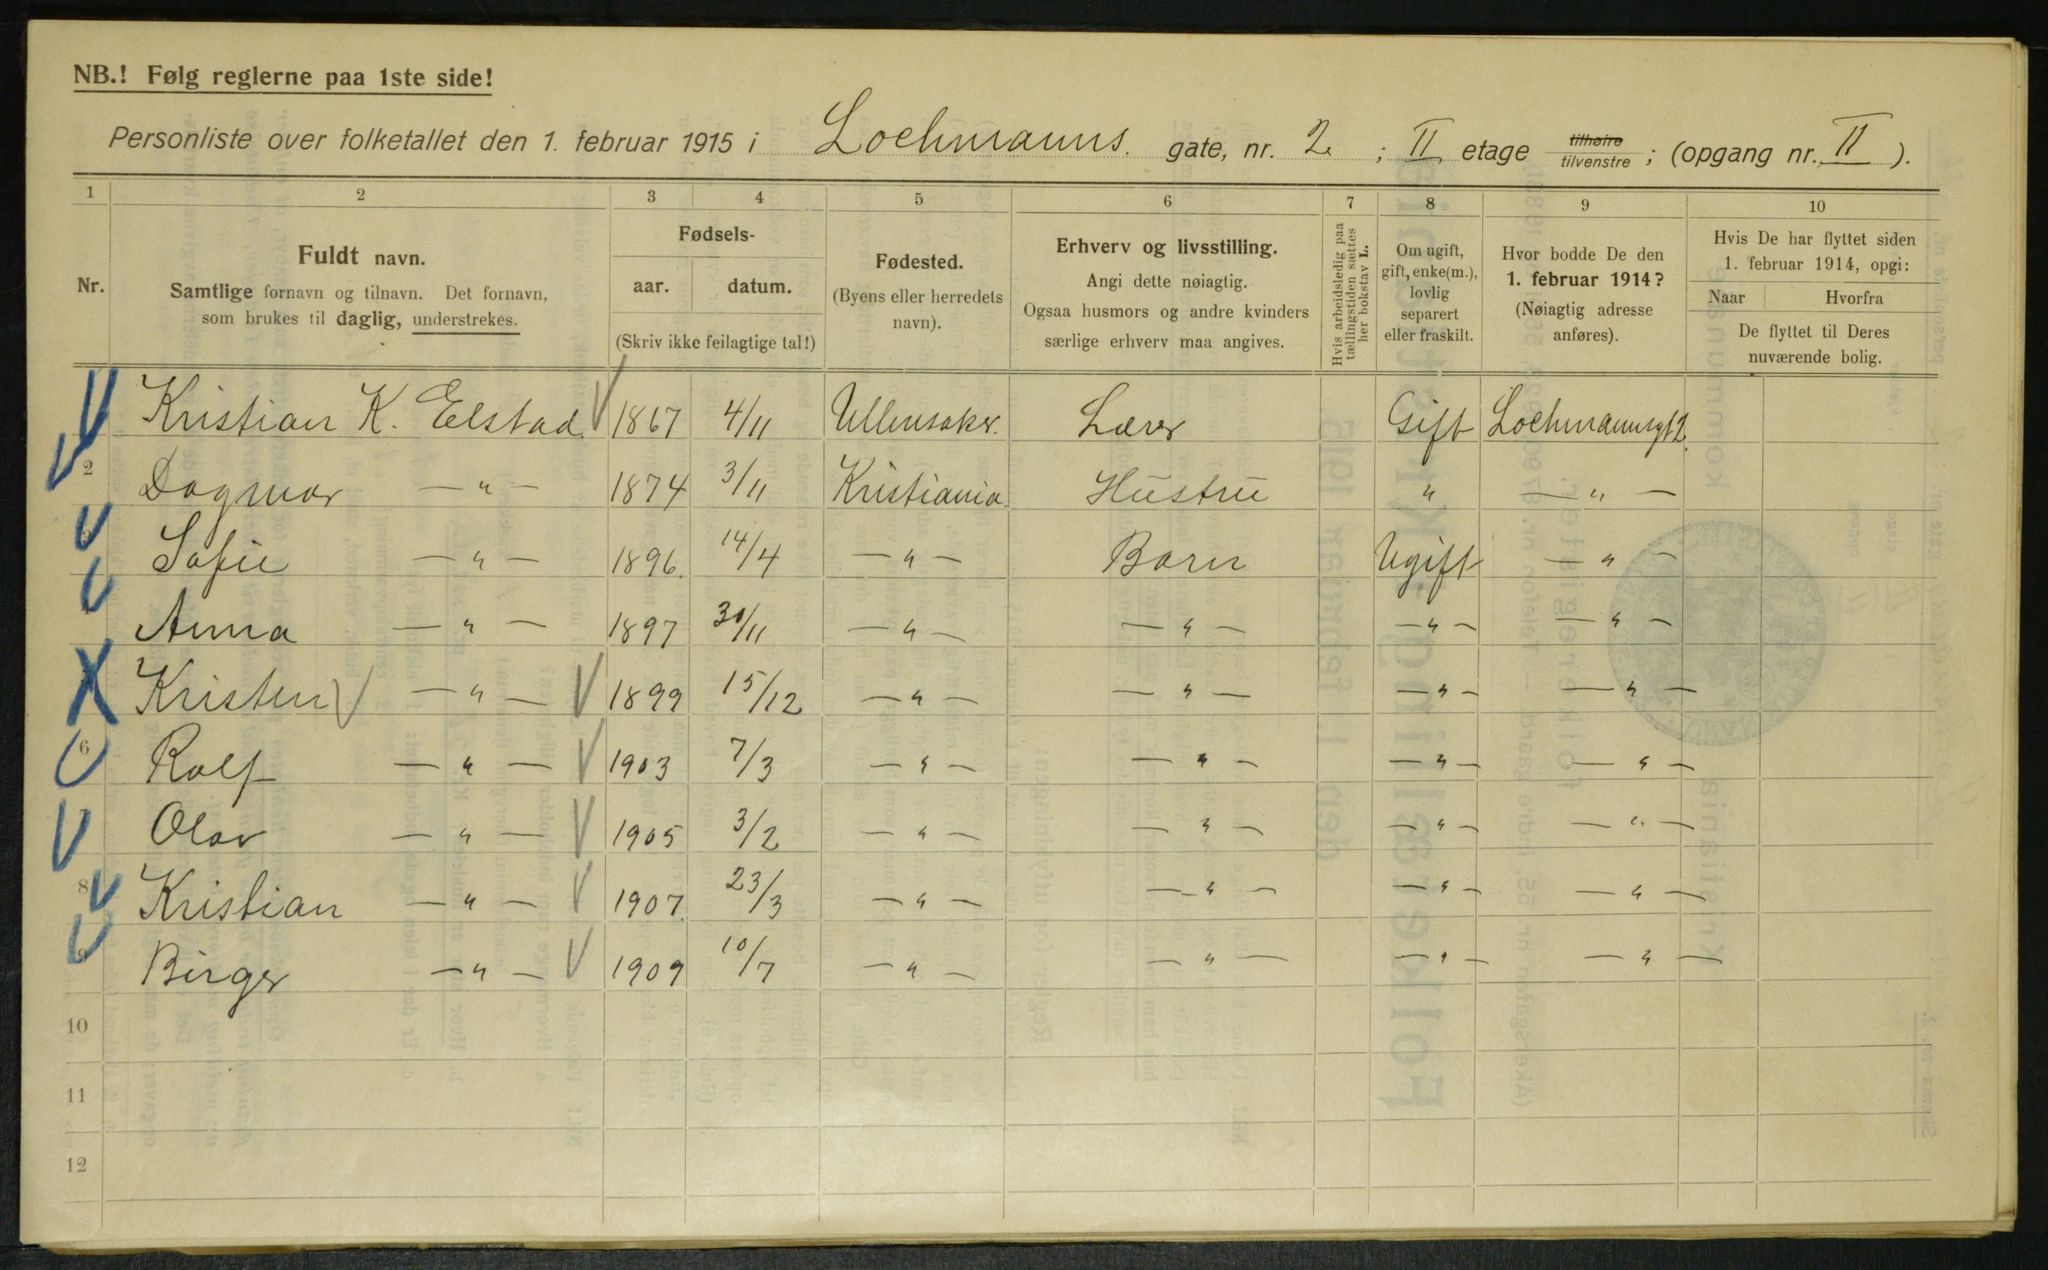 NB.! Følg reglerne paa 1ste side!
Personliste over folketallet den 1. februar 1915 i Lochmanns gate, nr. 2 ; II etage tilhøire tilvenstre ; (opgang nr. II ).
1 2 3 4 5 6 7 8 9 10
Nr.
Fuldt navn.
Samtlige fornavn og tilnavn. Det fornavn,
som brukes til daglig, understrekes.
Fødsels-
aar. datum.
(Skriv ikke feilagtige tal!)
Fødested.
(Byens eller herredets
navn).
Erhverv og livsstilling.
Angi dette nøiagtig.
Ogsaa husmors og andre kvinders
særlige erhverv maa angives.
Hvis arbeidsledig paa
tællingstiden sættes
her bokstav L.
Om ugift,
gift, enke(m.),
lovlig
separert
eller fraskilt.
Hvor bodde De den
1. februar 1914?
(Nøiagtig adresse
anføres).
Hvis De har flyttet siden
1. februar 1914, opgi:
Naar Hvorfra
De flyttet til Deres
nuværende bolig.
Kristian K. Elstad 1867 4/11 Ullensaker. Lærer Gift Lochmannsgt 2.
2 Dagmar — " — 1874 3/11 Kristiania Hustru " — " —
3 Sofie — " — 1896. 14/4 — " — Barn Ugift — " —
4 Anna — " — 1897 30/11 — " — — " — — " — — " —
Kristen — " — 1899 15/12 — " — — " — — " — — " —
6 Rolf — " — 1903 7/3 — " — — " — — " — — " —
Olav — " — 1905 3/2 — " — — " — — " — — " —
8 Kristian — " — 1907. 23/3 — " — — " — — " — — " —
9 Birger — " — 1909 10/7 — " — — " — — " — — " —
10
11
12